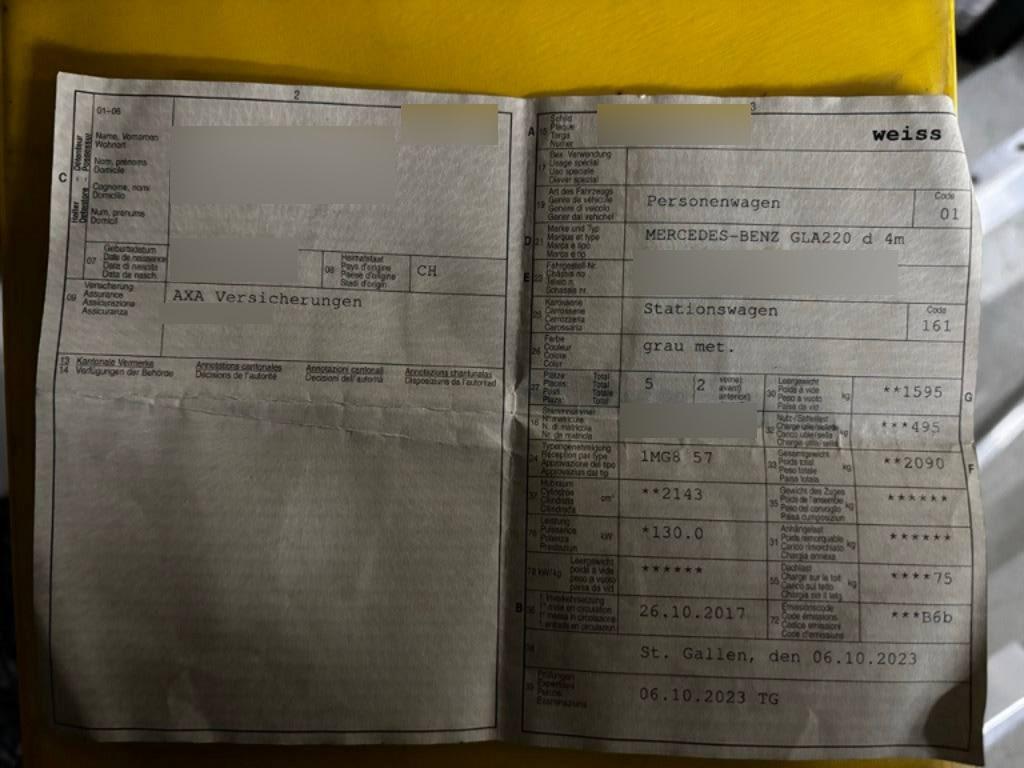 2
01-06
C
Halter - Détenteur
Detentore - Possessur
Name, Vornamen
Wohnort
Nom, prénoms
Domicile
Cognome, nomi
Domicilio
Num, prenums
Domicil
07
Geburtsdatum
Date de naissance
Data di nascita
Data da nasch.
08
Heimatstaat
Pays d'origine
Paese d'origine
Stadi d'origin
CH
09
Versicherung
Assurance
Assicurazione
Assicuranza
AXA Versicherungen
13 Kantonale Vermerke
14 Verfügungen der Behörde
Annotations cantonales
Décisions de l'autorité
Annotazioni cantonali
Decisioni dell'autorità
Annotaziuns chantunalas
Disposiziuns da l'autoritad
3
A
15
Schild
Plaque
Targa
Numer
weiss
17
Bes. Verwendung
Usage spécial
Uso speciale
Diever spezial
19
Art des Fahrzeugs
Genre de véhicule
Genere di veicolo
Gener dal vehichel
Personenwagen
Code
01
D 21
Marke und Typ
Marque et type
Marca e tipo
Marca e tip
MERCEDES-BENZ GLA220 d 4m
E 23
Fahrgestell-Nr.
Châssis no
Telaio n.
Schassis nr.
25
Karosserie
Carrosserie
Carrozzeria
Carossaria
Stationswagen
Code
161
26
Farbe
Couleur
Colore
Colur
grau met.
27
Plätze: Total
Places: Total
Posti: Totale
Plazs: Total
5
2
vorne)
avant)
anteriori)
30
Leergewicht
Poids à vide
Peso a vuoto
Paisa da vid
kg
**1595
G
18
Stammnummer
N° matricule
N. di matricola
Nr. da matricla
32
Nutz-/Sattellast
Charge utile/sellette
Carico utile/sella
Chargia utila/sella
kg
***495
24
Typengenehmigung
Réception par type
Approvazione del tipo
Approvaziun dal tip
1MG8 57
33
Gesamtgewicht
Poids total
Peso totale
Paisa totala
kg
**2090
F
37
Hubraum
Cylindrée
Cilindrata
Cilindrada
cm³
**2143
35
Gewicht des Zuges
Poids de l'ensemble
Peso del convoglio
Paisa cumposiziun
kg
******
76
Leistung
Puissance
Potenza
Prestaziun
kW
*130.0
31
Anhängelast
Poids remorquable
Carico rimorchiato
Chargia annexa
kg
******
78 kW/kg
Leergewicht
poids à vide
peso a vuoto
paisa da vid
******
55
Dachlast
Charge sur le toit
Carico sul tetto
Chargia sin il tetg
kg
****75
B 36
1. Inverkehrsetzung
1re mise en circulation
1a messa in circolazione
1. entrada en circulaziun
26.10.2017
72
Emissionscode
Code émissions
Codice emissioni
Code d'emissiuns
***B6b
38
St. Gallen, den 06.10.2023
39
Prüfungen
Expertises
Perizie
Examinaziuns
06.10.2023 TG